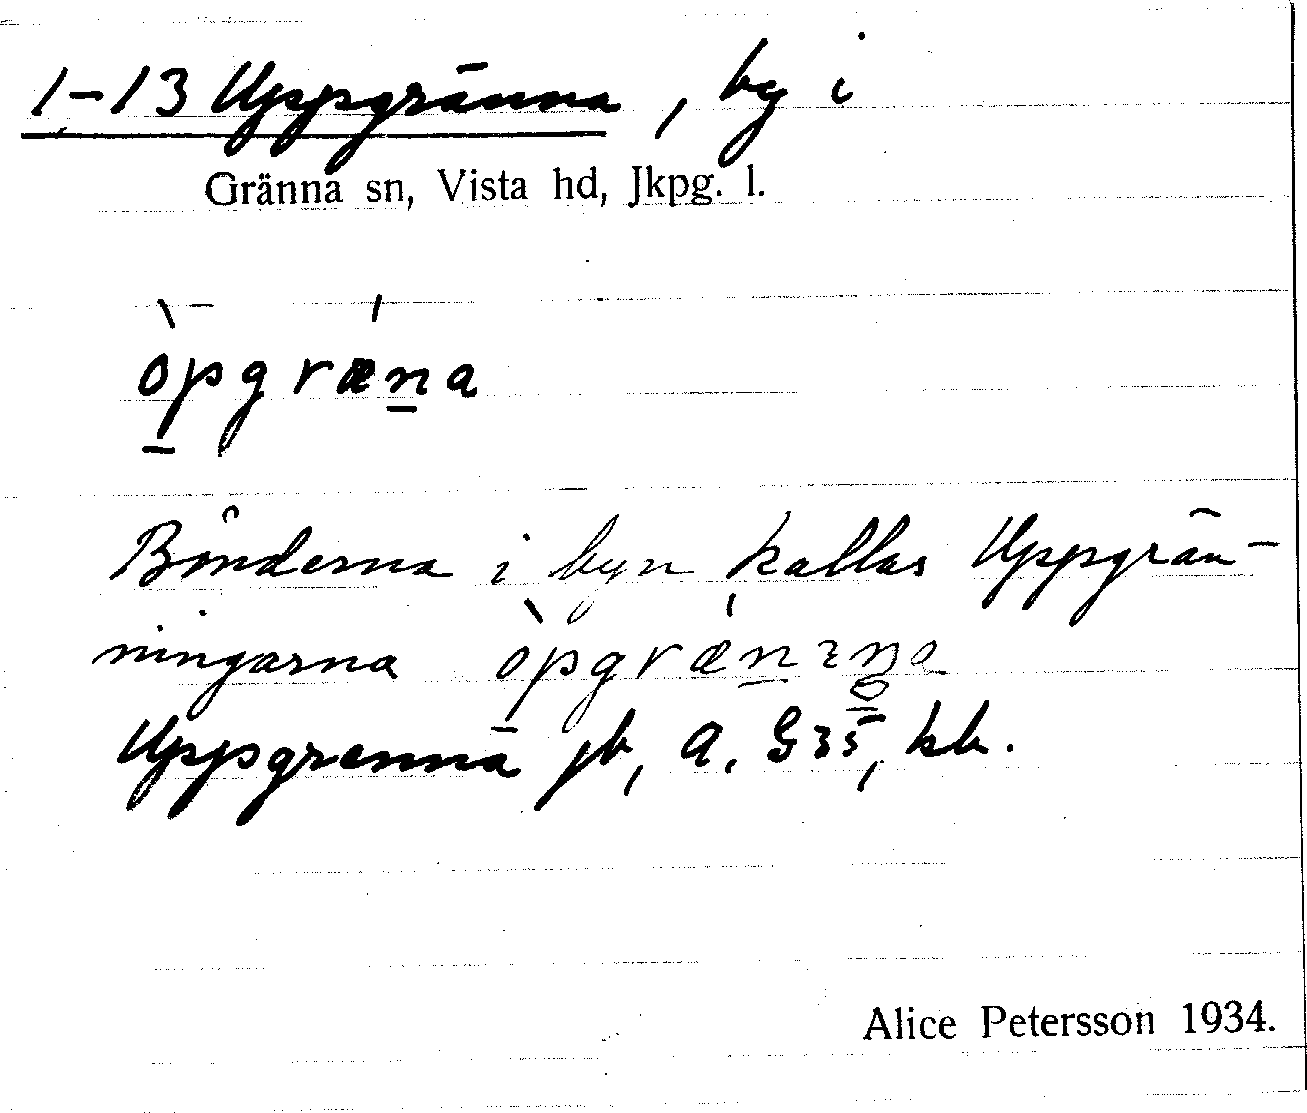 1-13 Uppgränna, by i
Gränna sn, Vista hd, Jkpg. l.
òpgrǽna
Bönderna i byn kallas Uppgrän-
ningarna òpgrǽnıŋa
Uppgrenna jb, a, G 35, kb.
Alice Petersson 1934.